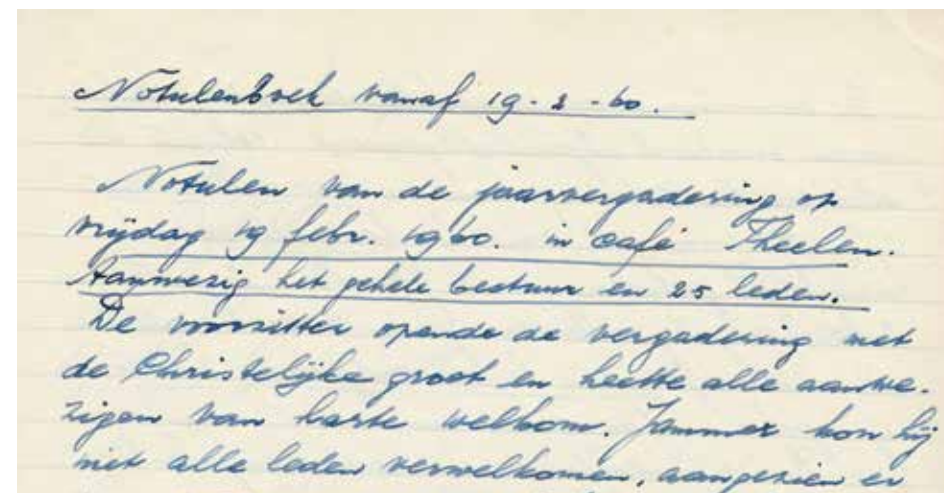 Notulenboek vanaf 19-2-60.
Notulen van de jaarvergadering op
vrijdag 19 febr. 1960. in café Theelen.
Aanwezig het gehele bestuur en 25 leden.
De voorzitter opende de vergadering met
de Christelijke groet en heette alle aanwe-
zigen van harte welkom. Jammer kon hij
niet alle leden verwelkomen, aangezien er